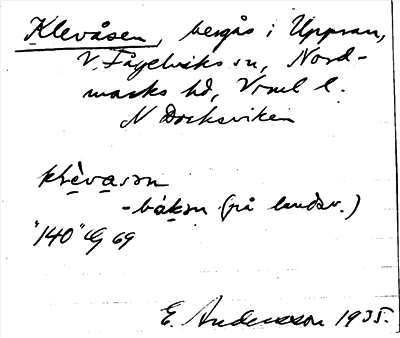 Klevåsen, bergås i Uppsan,
V. Fågelviks sn, Nord-
marks hd, Vrml l.
N Docksviken
klèvasən
-bàkən (på landsv.)
"140" G 69
E. Andersson 1935.